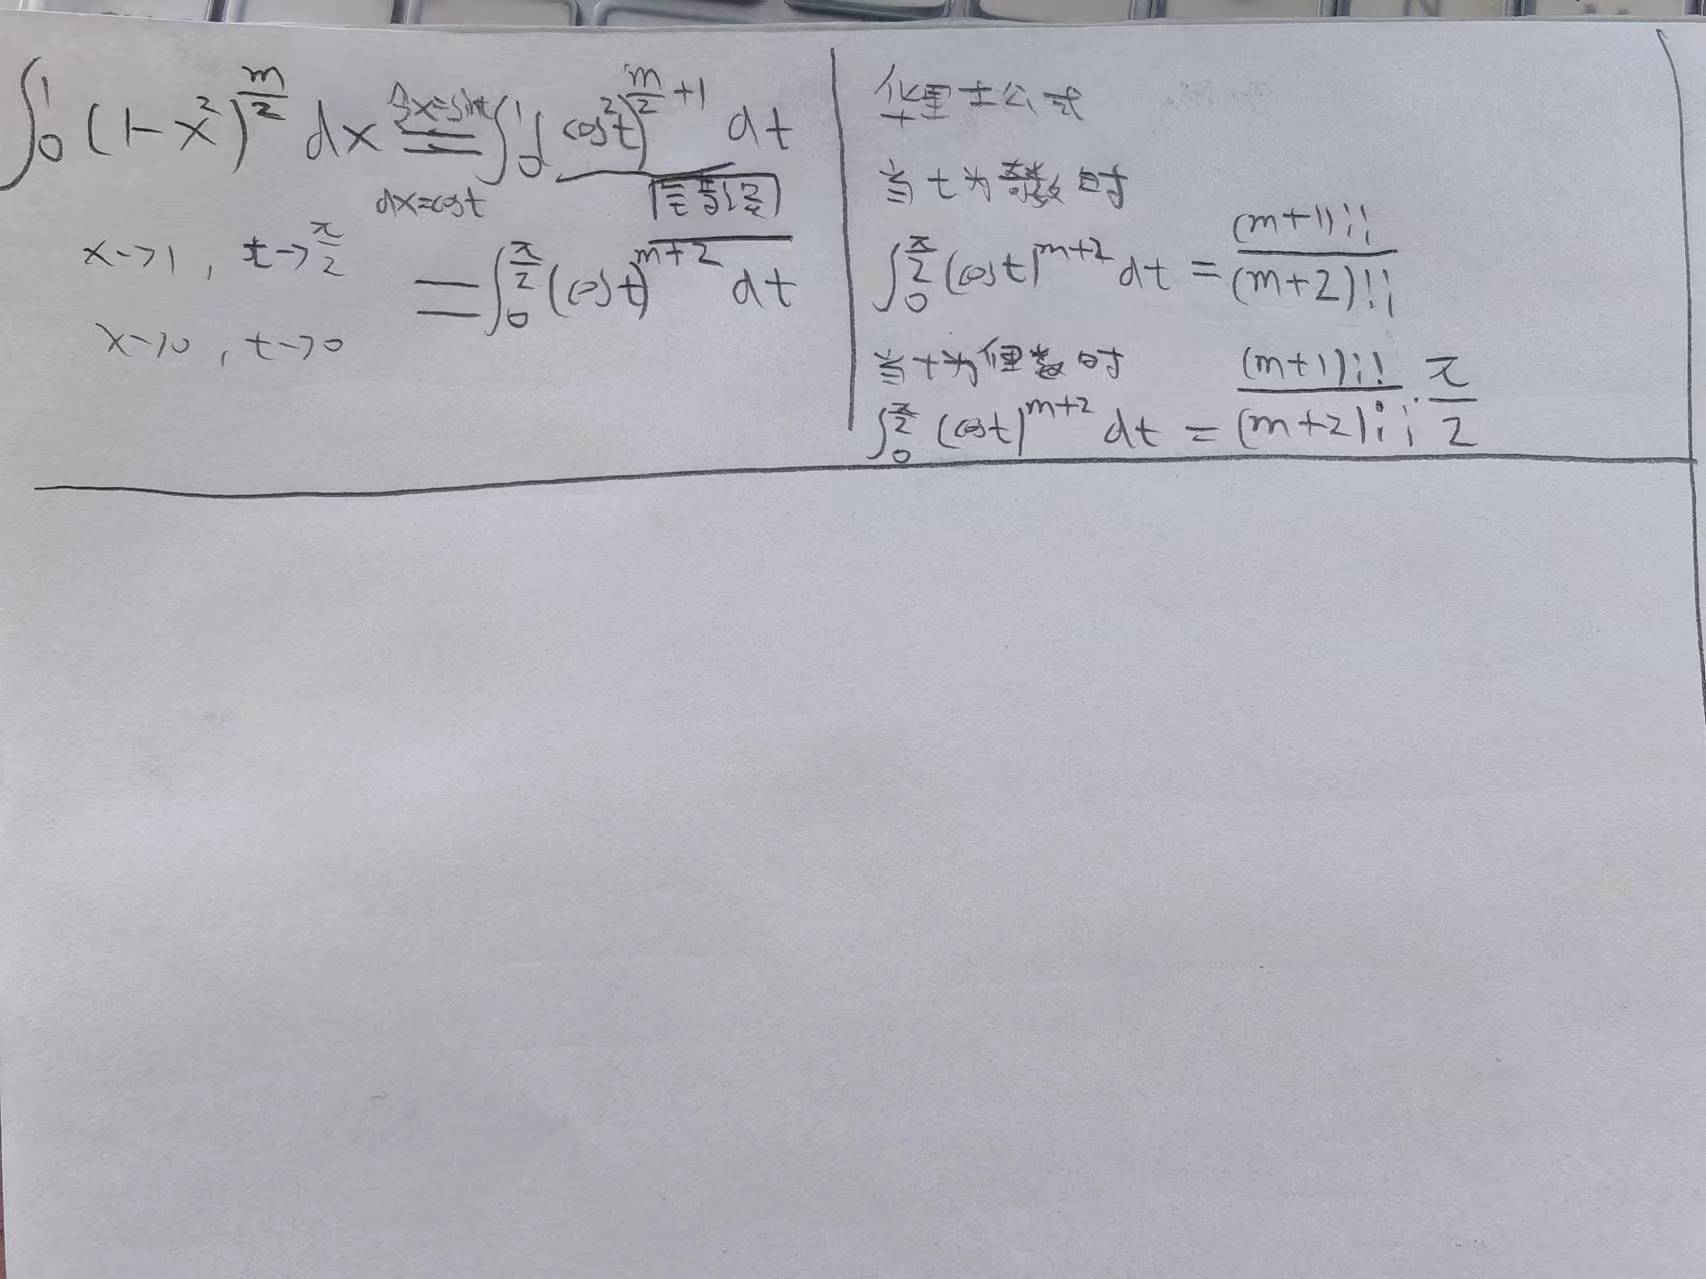 ∫₀¹ (1-x²)^(m/2) dx 令x=sint = ∫₀¹ (cos²t)^(m/2+1) dt
dx=cost
x→1, t→π/2
= ∫₀^(π/2) (cost)^(m+2) dt
x→0, t→0
华里士公式
当t为奇数时
∫₀^(π/2) (cost)^(m+2) dt = (m+1)!!/(m+2)!!
当t为偶数时
∫₀^(π/2) (cost)^(m+2) dt = (m+1)!!/(m+2)!! · π/2